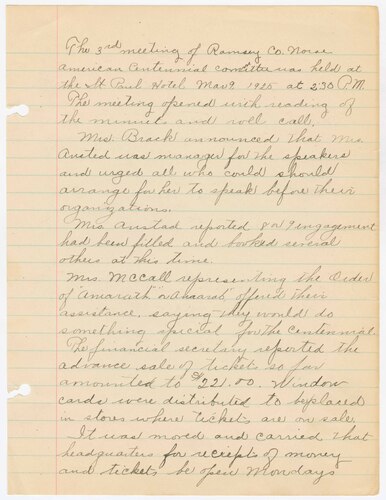 The 3rd meeting of Ramsey Co. Norse
American Centennial committee was held at
the St Paul Hotel Mar 9 1925 at 2:30 P.M.
The meeting opened with reading of
the minutes and roll call.
Mrs. Brack announced that Mrs.
Austad was manager for the speakers
and urged all who could should
arrange for her to speak before their
organizations.
Mrs Austad reported 8 or 9 engagement
had been filled and booked several
others at this time.
Mrs. McCall representing the Order
of "Amarath" offered their
assistance, saying they would do
something special for the Centennial.
The financial secretary reported the
advance sale of tickets so far
amounted to $221.00. Window
cards were distributed to be placed
in stores where tickets are on sale.
It was moved and carried that
headquarters for receipts of money
and tickets be open Mondays